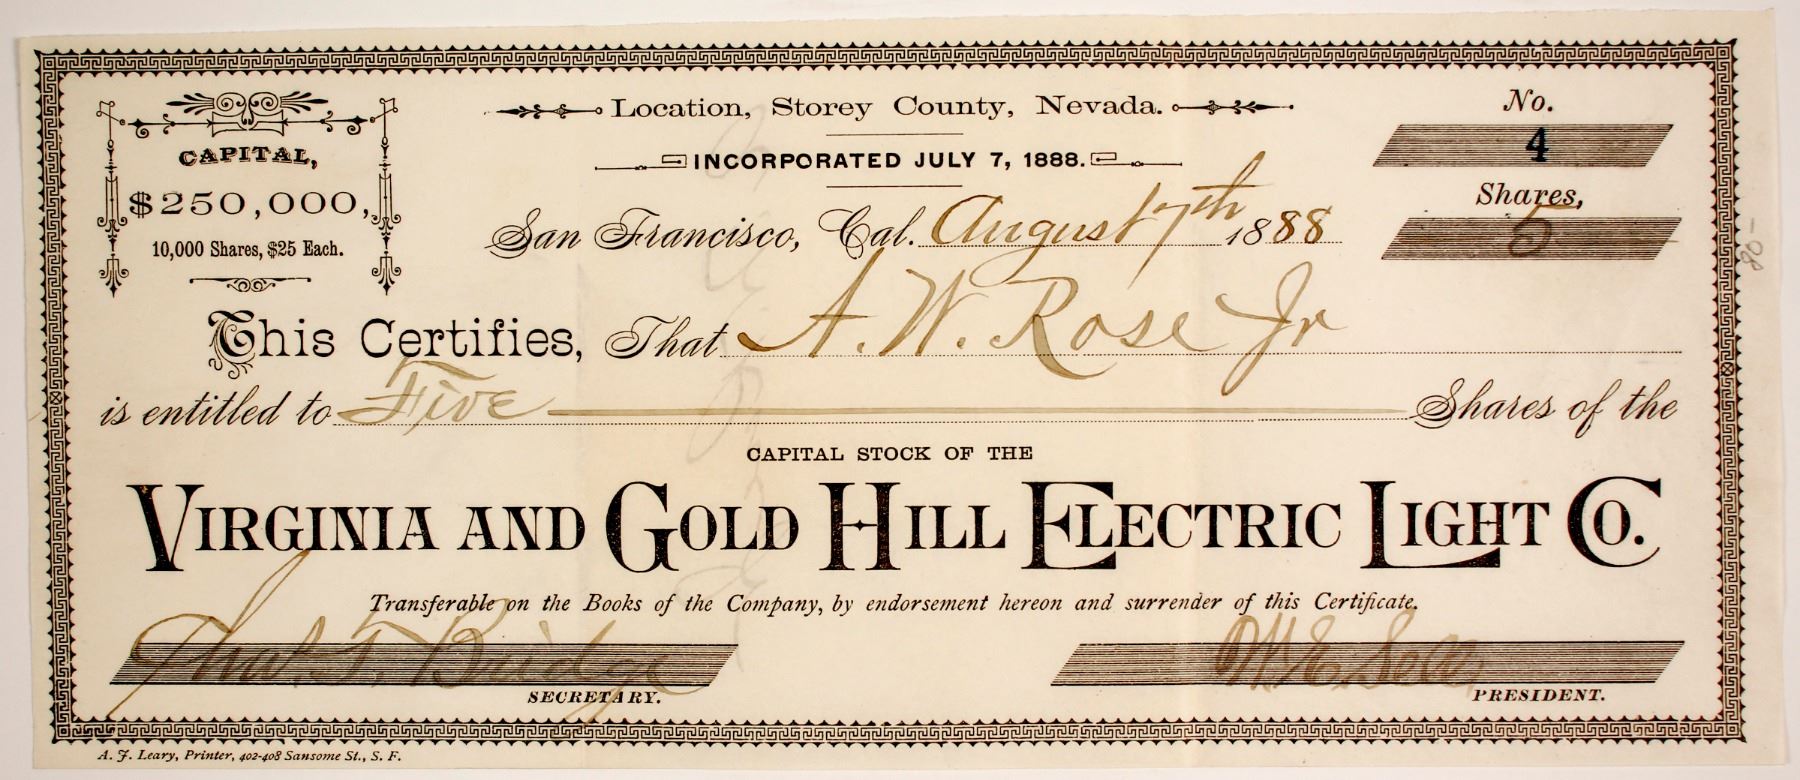 Location, Storey County, Nevada.
INCORPORATED JULY 7, 1888.
No.
4
Shares,
5
CAPITAL,
$250,000,
10,000 Shares, $25 Each.
San Francisco, Cal. August 7th 1888
This Certifies, That A. W. Rose Jr
is entitled to Five Shares of the
CAPITAL STOCK OF THE
VIRGINIA AND GOLD HILL ELECTRIC LIGHT CO.
Transferable on the Books of the Company, by endorsement hereon and surrender of this Certificate.
Bridge
SECRETARY.
PRESIDENT.
A. J. Leary, Printer, 402-408 Sansome St., S. F.